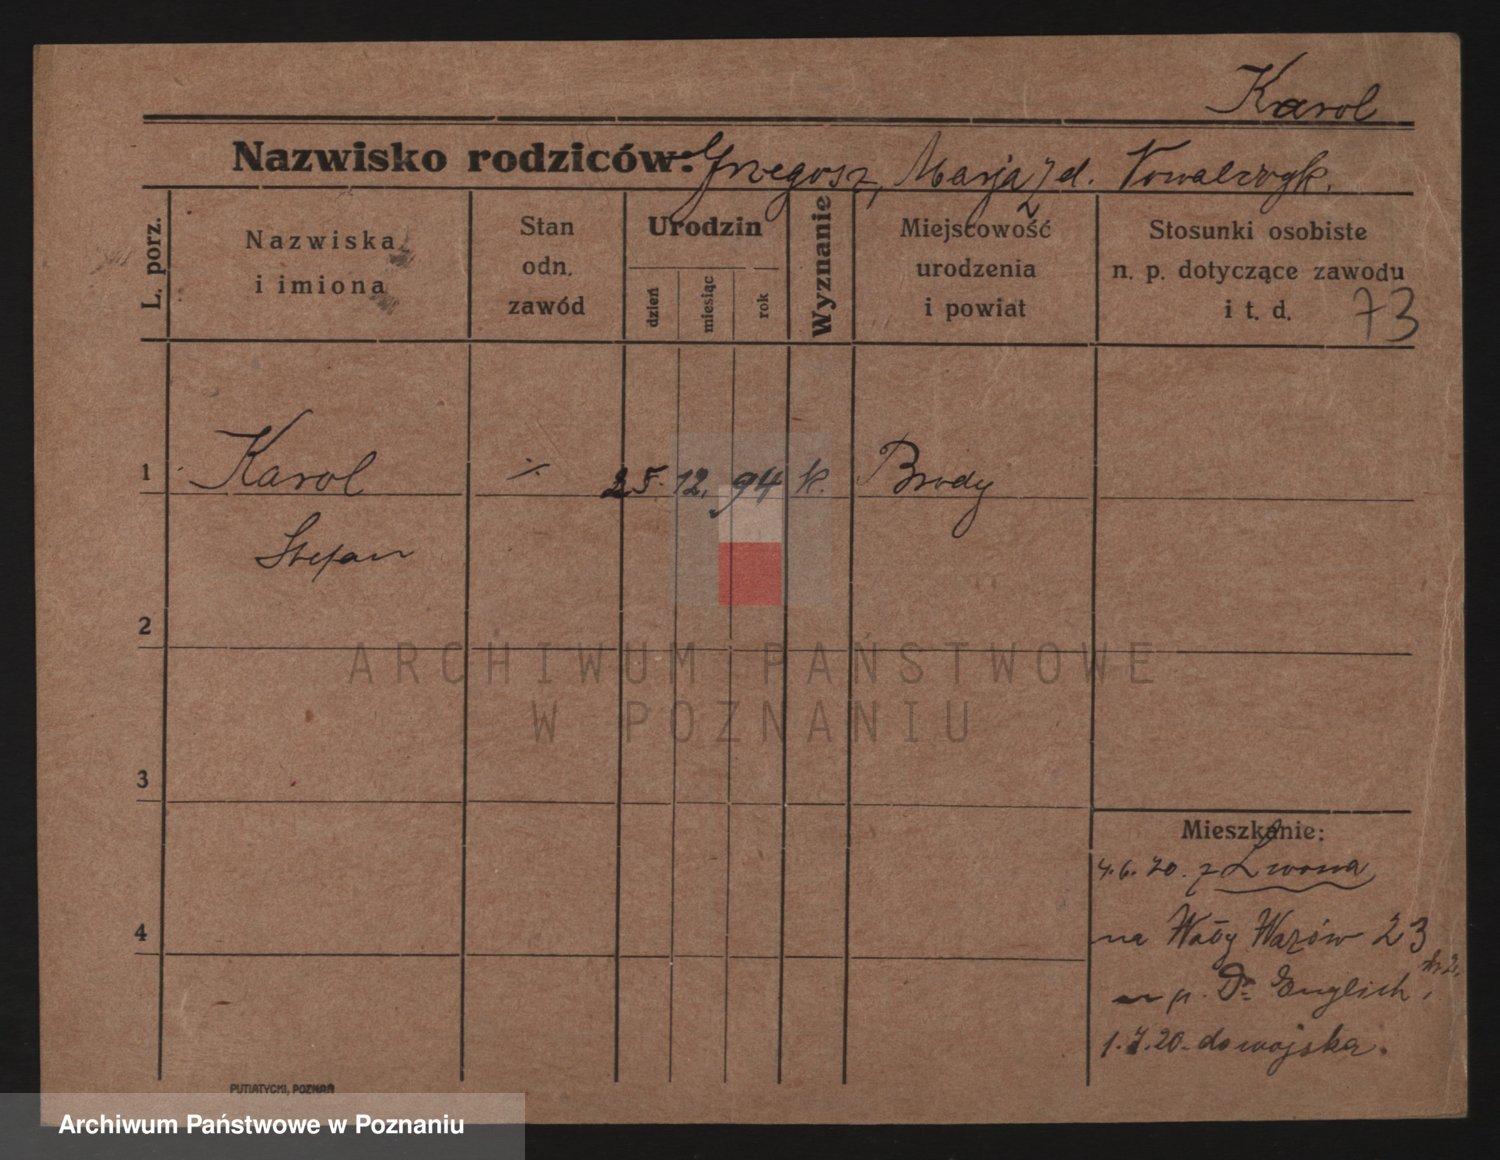 Karol
Nazwisko rodziców: Grzegosz, Marja z d. Kowalczyk.
L. porz.
Nazwiska i imiona
Stan odn. zawód
Urodzin
dzień
miesiąc
rok
Wyznanie
Miejscowość urodzenia i powiat
Stosunki osobiste n. p. dotyczące zawodu i t. d.
73
1 Karol ./. 25. 12. 94 k. Brody
Stefan
2
3
4
Mieszkanie:
4.6.20. z Lwowa
na Wały Wazów 23
p. Dr Englich,
1.7.20. do wojska.
PUTIATYCKI, POZNAŃ
ARCHIWUM PAŃSTWOWE
W POZNANIU
Archiwum Państwowe w Poznaniu